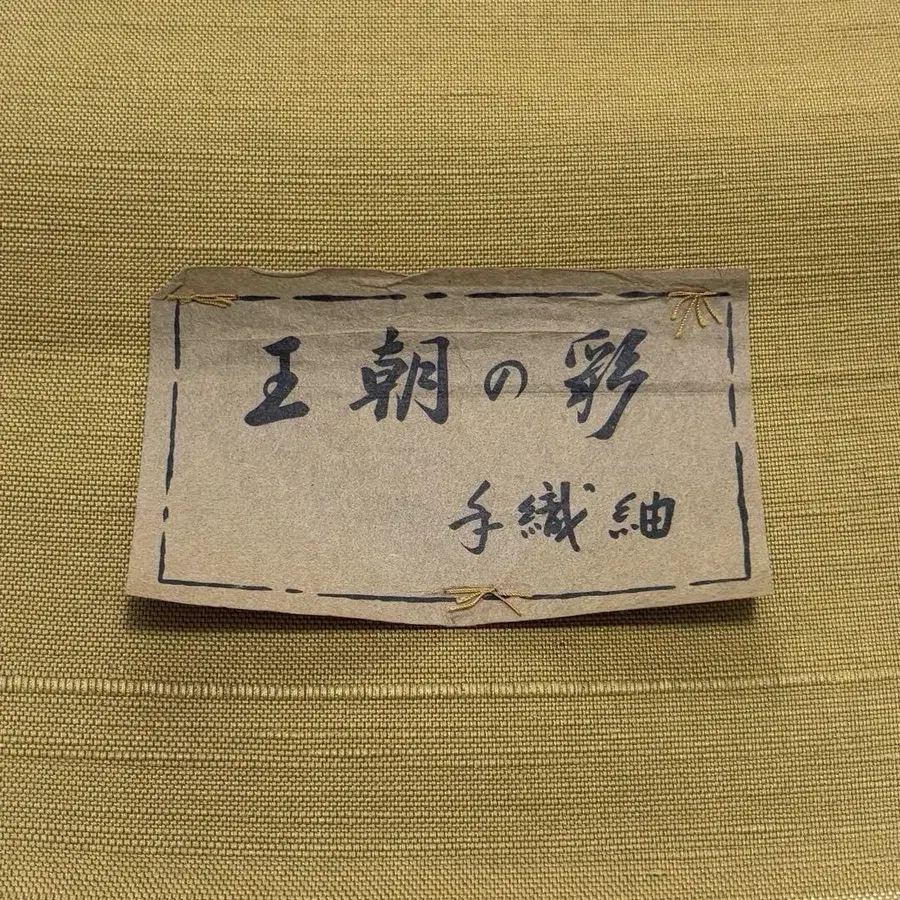 王朝の彩
手織紬